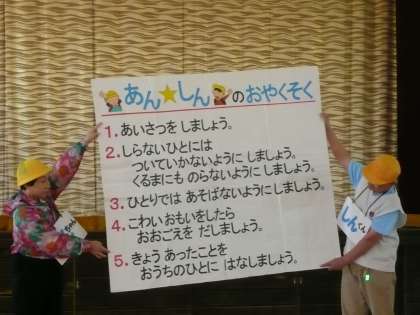 あん☆しんのおやくそく
1. あいさつを しましょう。
2. しらないひとには
ついていかないように しましょう。
くるまにも のらないように しましょう。
3. ひとりでは あそばないようにしましょう。
4. こわい おもいをしたら
おおごえを だしましょう。
5. きょう あったことを
おうちのひとに はなしましょう。
しん